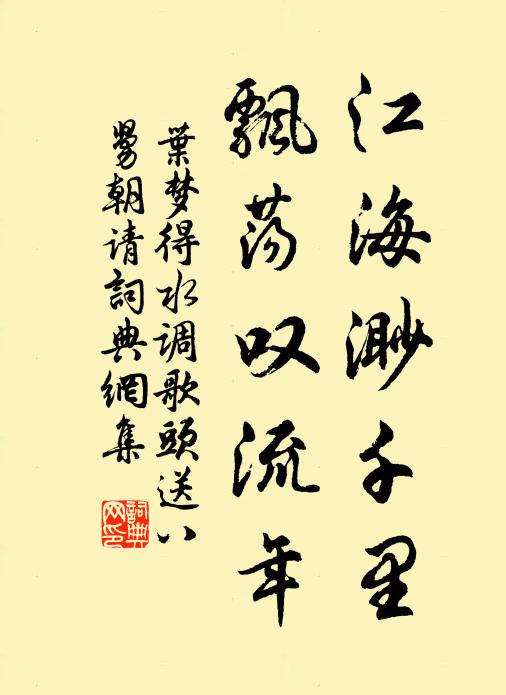 江海渺千里
飘荡叹流年
葉梦得水调歌頭送八
舅朝请詞典網集
詞典
网印